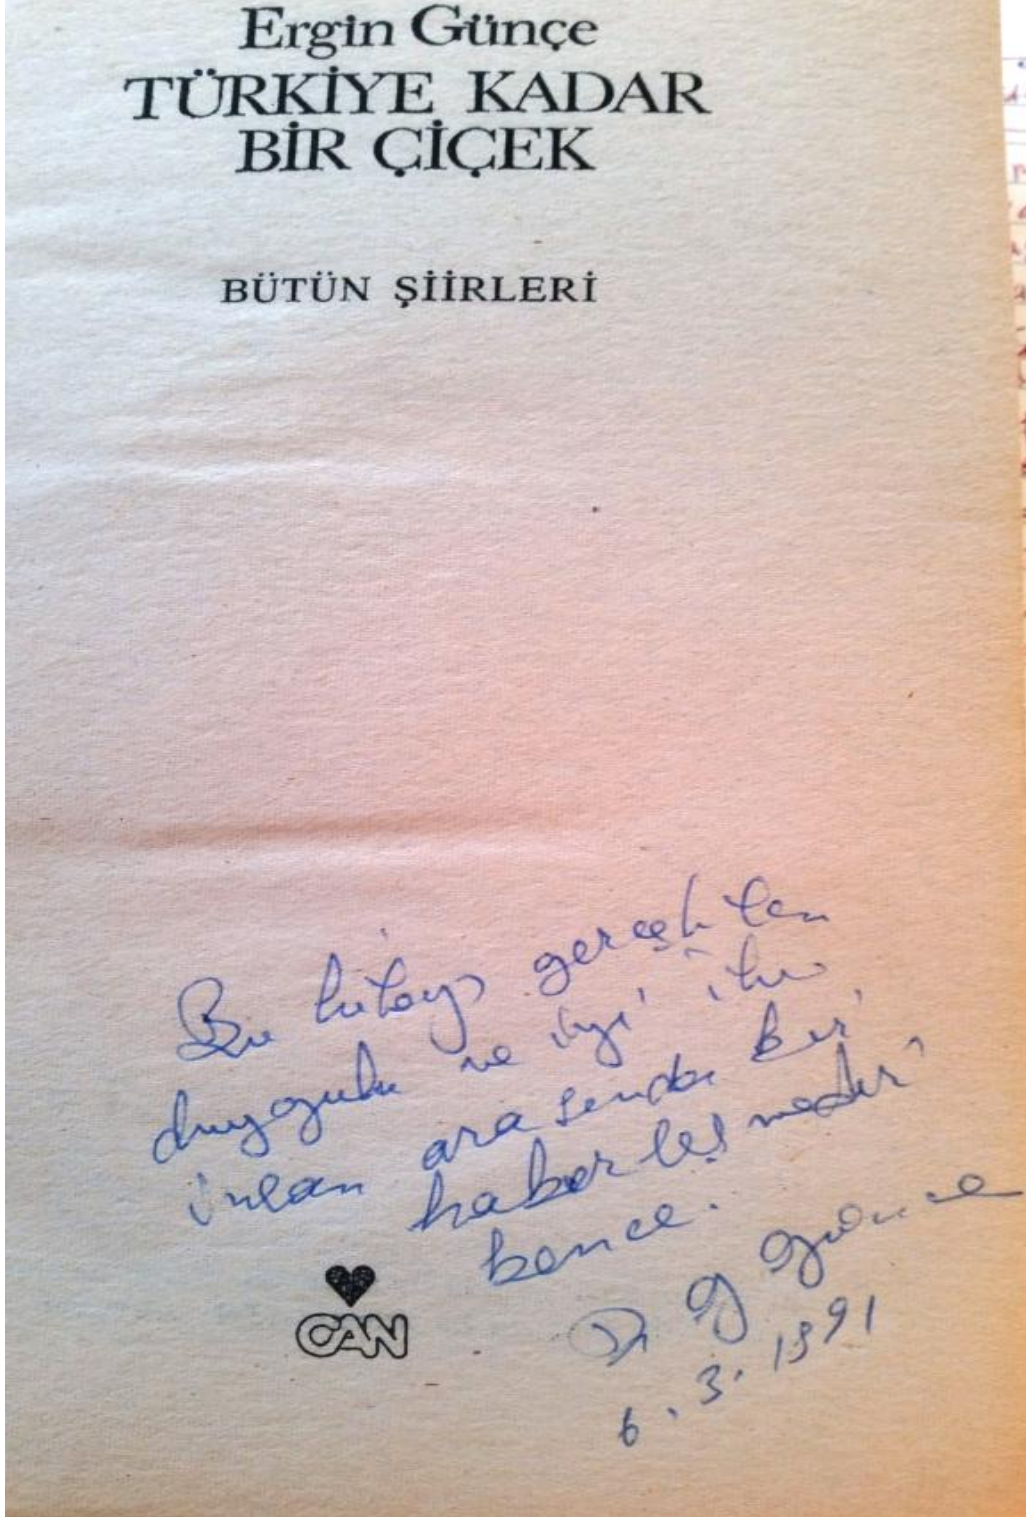 Ergin Günçe
TÜRKİYE KADAR
BİR ÇİÇEK
BÜTÜN ŞİİRLERİ
Bu kitap gerçekten
duygulu ve iyi iki
insan arasında bir
haberleşmedir
bence.
Dr G Günçe
6.3.1991
CAN